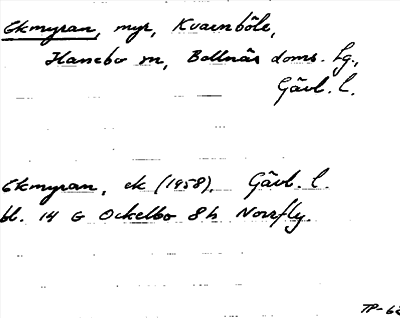 Ekmyran, myr, Kvarnböle,
Hanebo sn, Bollnäs doms. lg.,
Gävl. l.
Ekmyran, ek (1958). Gävl. l.
bl. 14 G Ockelbo 8h Norrfly.
TP-62